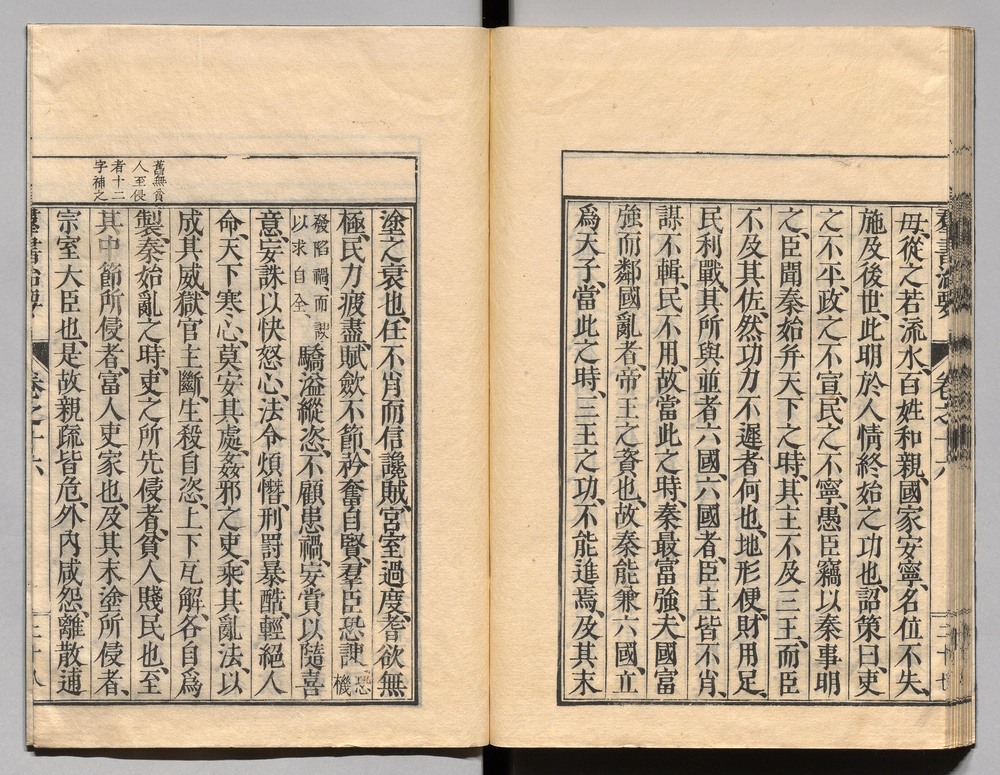 羣書治要 卷之十六 三十七
毋、從之若流水、百姓和親、國家安寧、名位不失、
施及後世、此明於人情終始之功也、詔策曰、吏
之不平、政之不宣、民之不寧、愚臣竊以秦事明
之、臣聞秦始并天下之時、其主不及三王、而臣
不及其佐、然功力不遲者何也、地形便、財用足、
民利戰、其所與並者六國、六國者、臣主皆不肖、
謀不輯、民不用、故當此之時、秦最富強、夫國富
強而鄰國亂者、帝王之資也、故秦能兼六國、立
爲天子、當此之時、三王之功、不能進焉、及其末
塗之衰也、任不肖而信讒賊、宮室過度、耆欲無
極、民力疲盡、賦歛不節、矜奮自賢、羣臣恐諛、恐機
發陷禍、而諛以求自全、驕溢縱恣、不顧患禍、妄賞以隨喜
意、妄誅以快怒心、法令煩憯、刑罰暴酷、輕絕人
命、天下寒心、莫安其處、姦邪之吏、乘其亂法、以
成其威、獄官主斷、生殺自恣、上下瓦解、各自爲
製、秦始亂之時、吏之所先侵者、貧人賤民也、至
其中節、所侵者、富人吏家也、及其末塗、所侵者、
宗室大臣也、是故親疏皆危、外內咸怨、離散逋
舊無貧
人至侵
者十二
字補之
羣書治要 卷之十六 三十八